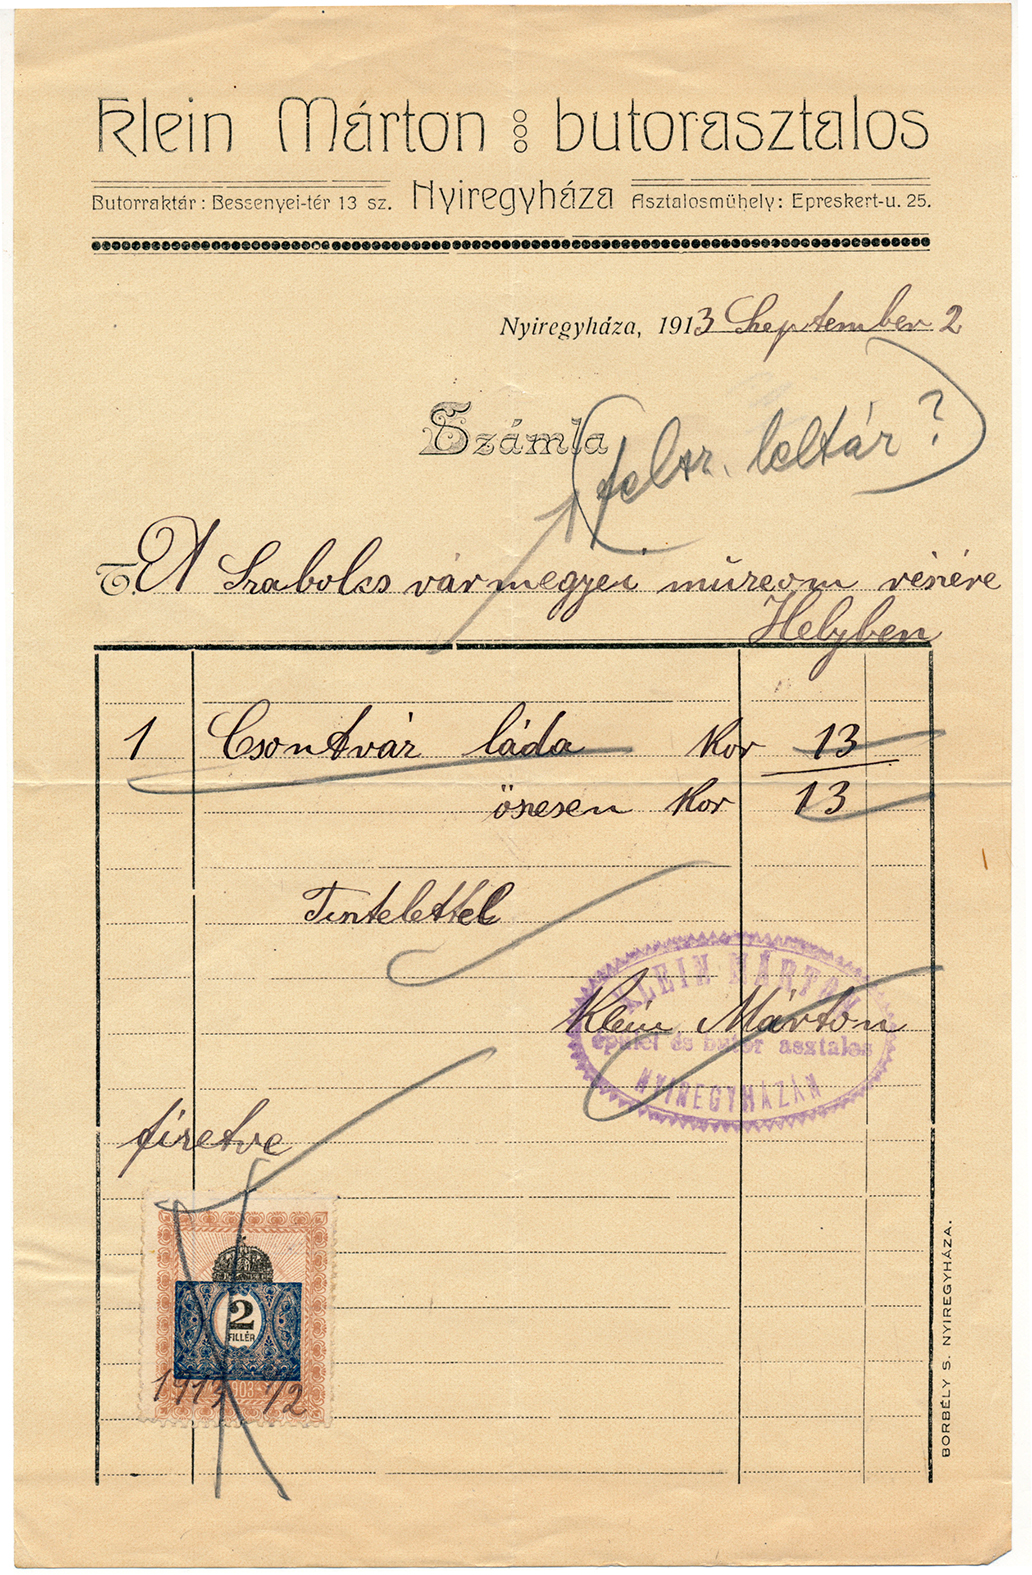 Klein Márton butorasztalos
Butorraktár: Bessenyei-tér 13 sz. Nyiregyháza Asztalosmühely: Epreskert-u. 25.
Nyiregyháza, 1913 Szeptember 2
Számla
(felsz. leltár?)
T. A Szabolcs vármegyei múzeom részére
Helyben
1 Csontvár láda Kor 13
öszesen Kor 13
Tisztelettel
KLEIN MÁRTON
Klein Márton
épület és butor asztalos
NYIREGYHÁZÁN
fizetve
2
FILLÉR
1913 9/2
BORBÉLY S. NYIREGYHÁZA.